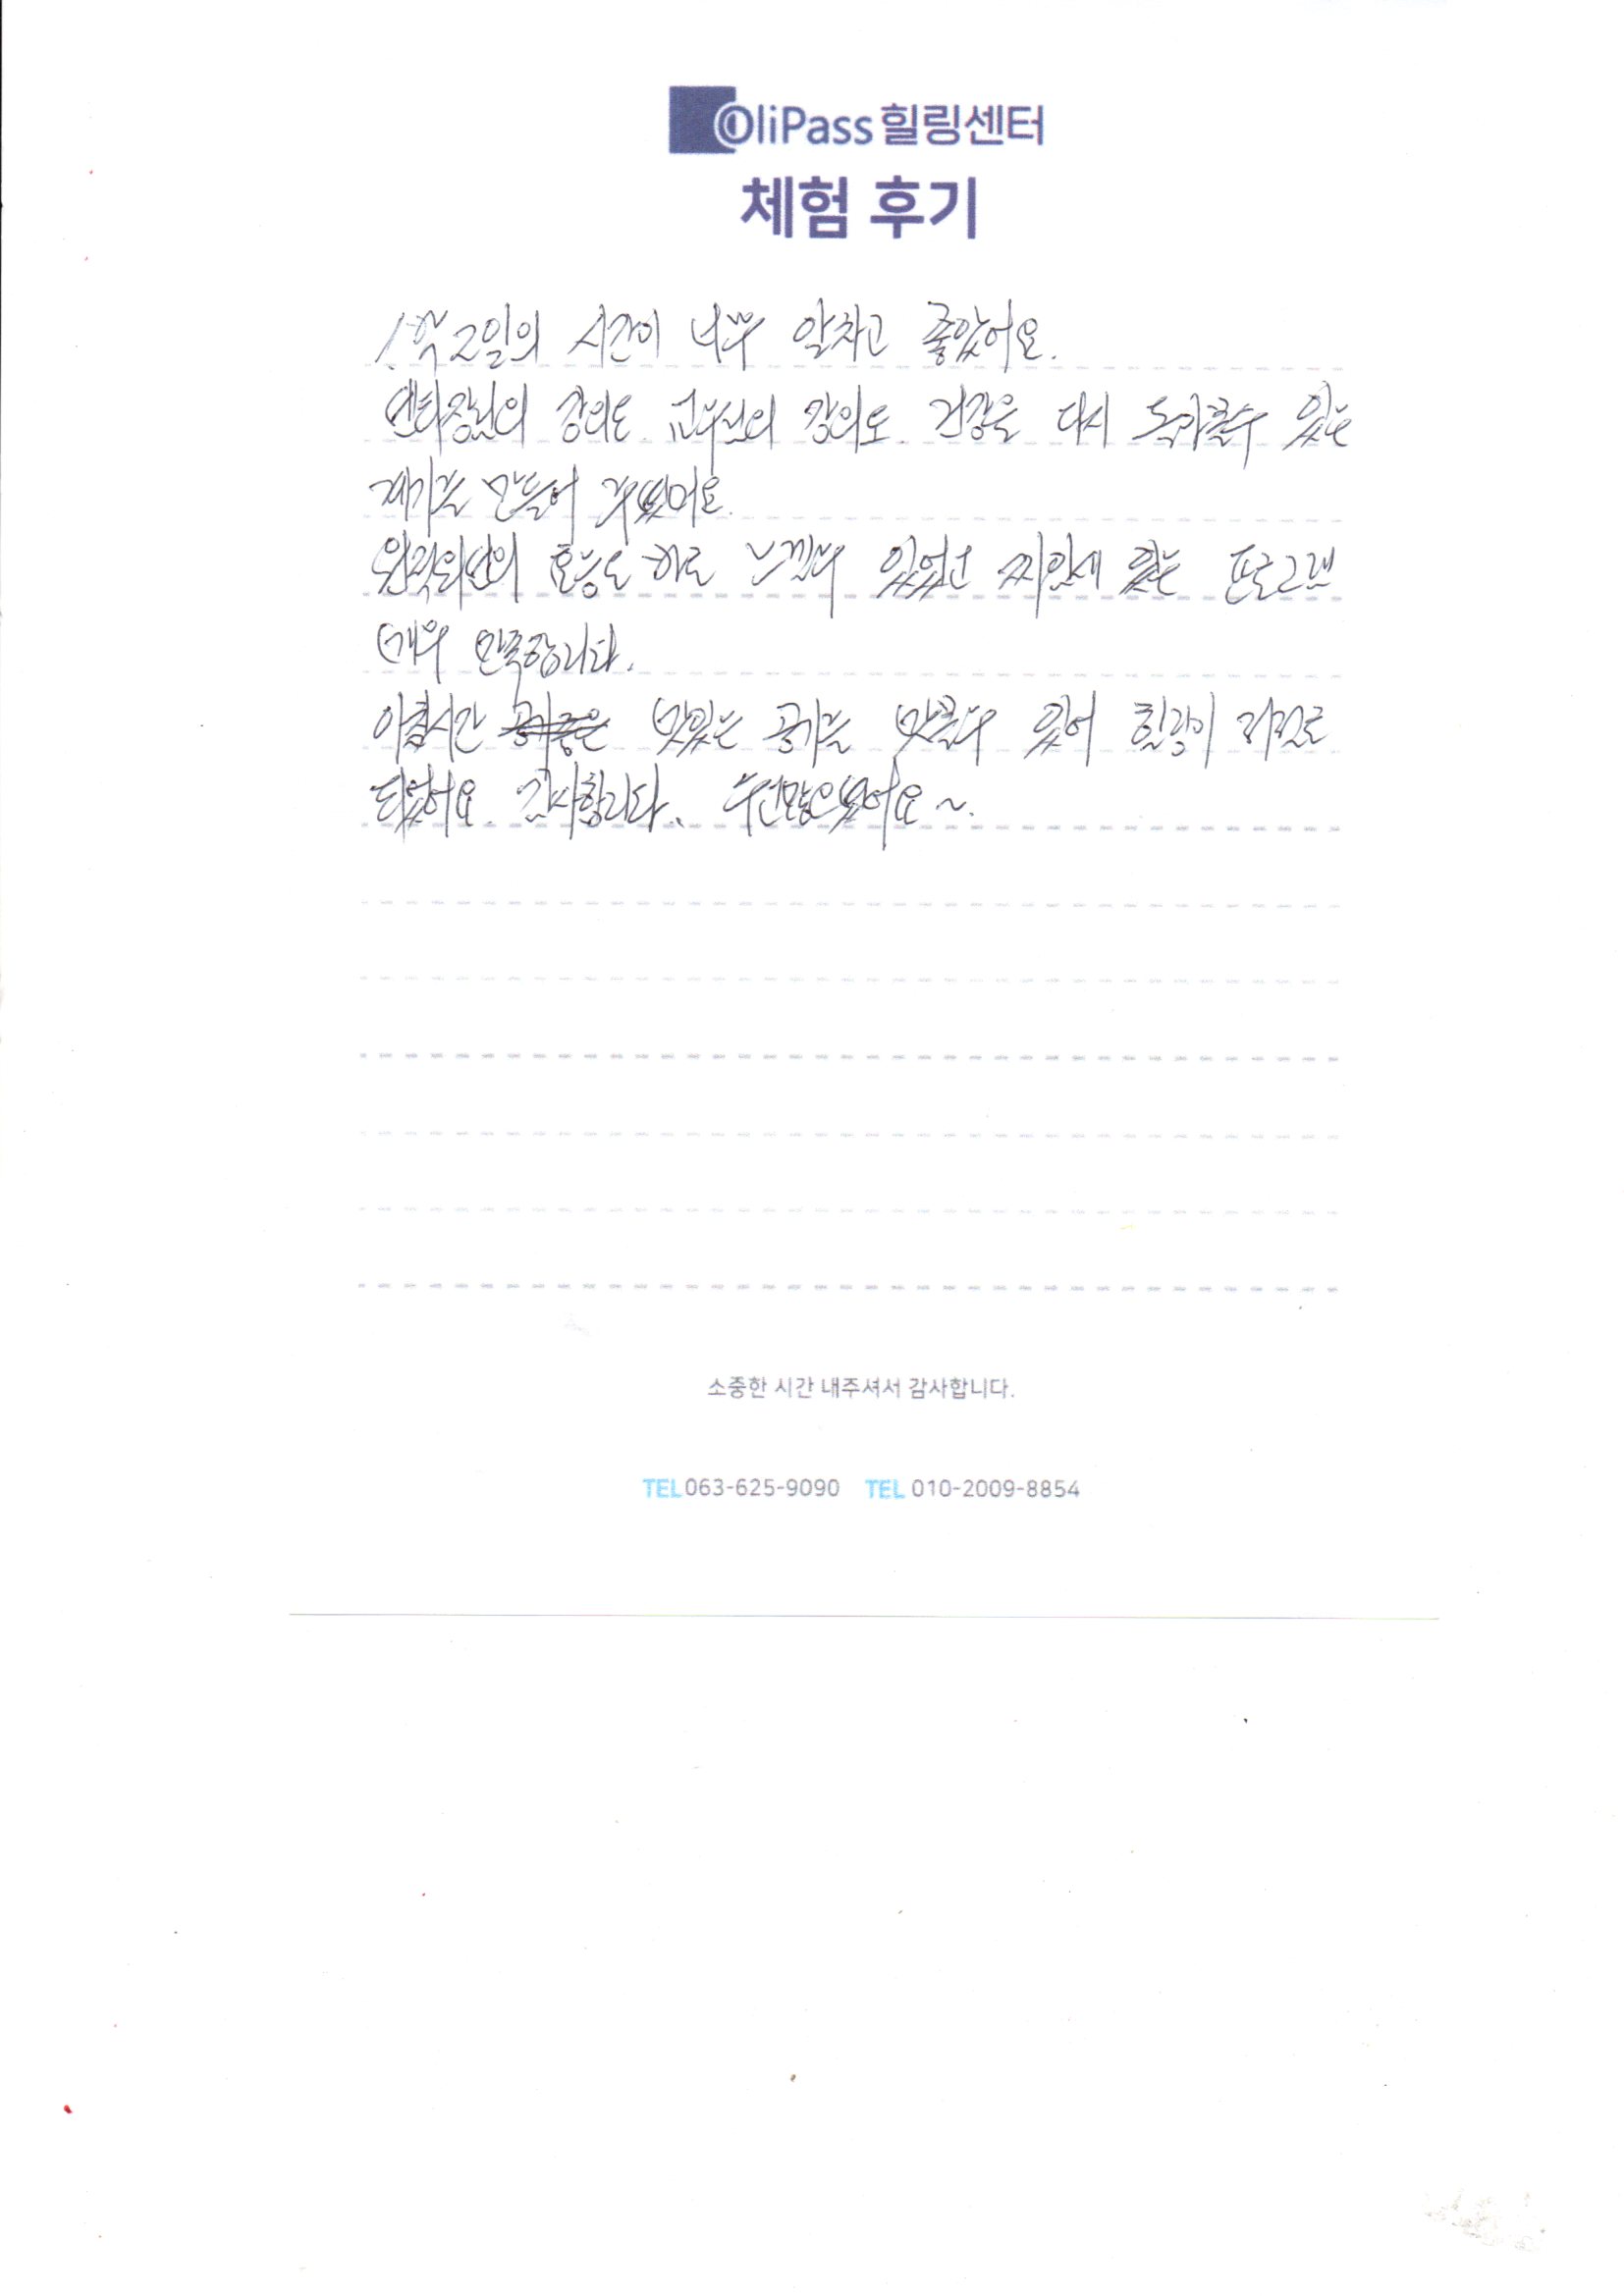 OliPass 힐링센터
체험 후기
1박2일의 시간이 너무 알차고 좋았어요.
센타장님의 강의도 교수님의 강의도 건강을 다시 있는
계기를 만들어 주셨어요.
효능도 바로 느낄수 있었고 짜임새 있는 프로그램
매우 만족합니다.
아침시간 맛있는 공기를 맛볼수 있어 힐링이 저절로
되었어요. 감사합니다. 수고많으셨어요~.
소중한 시간 내주셔서 감사합니다.
TEL 063-625-9090 TEL 010-2009-8854